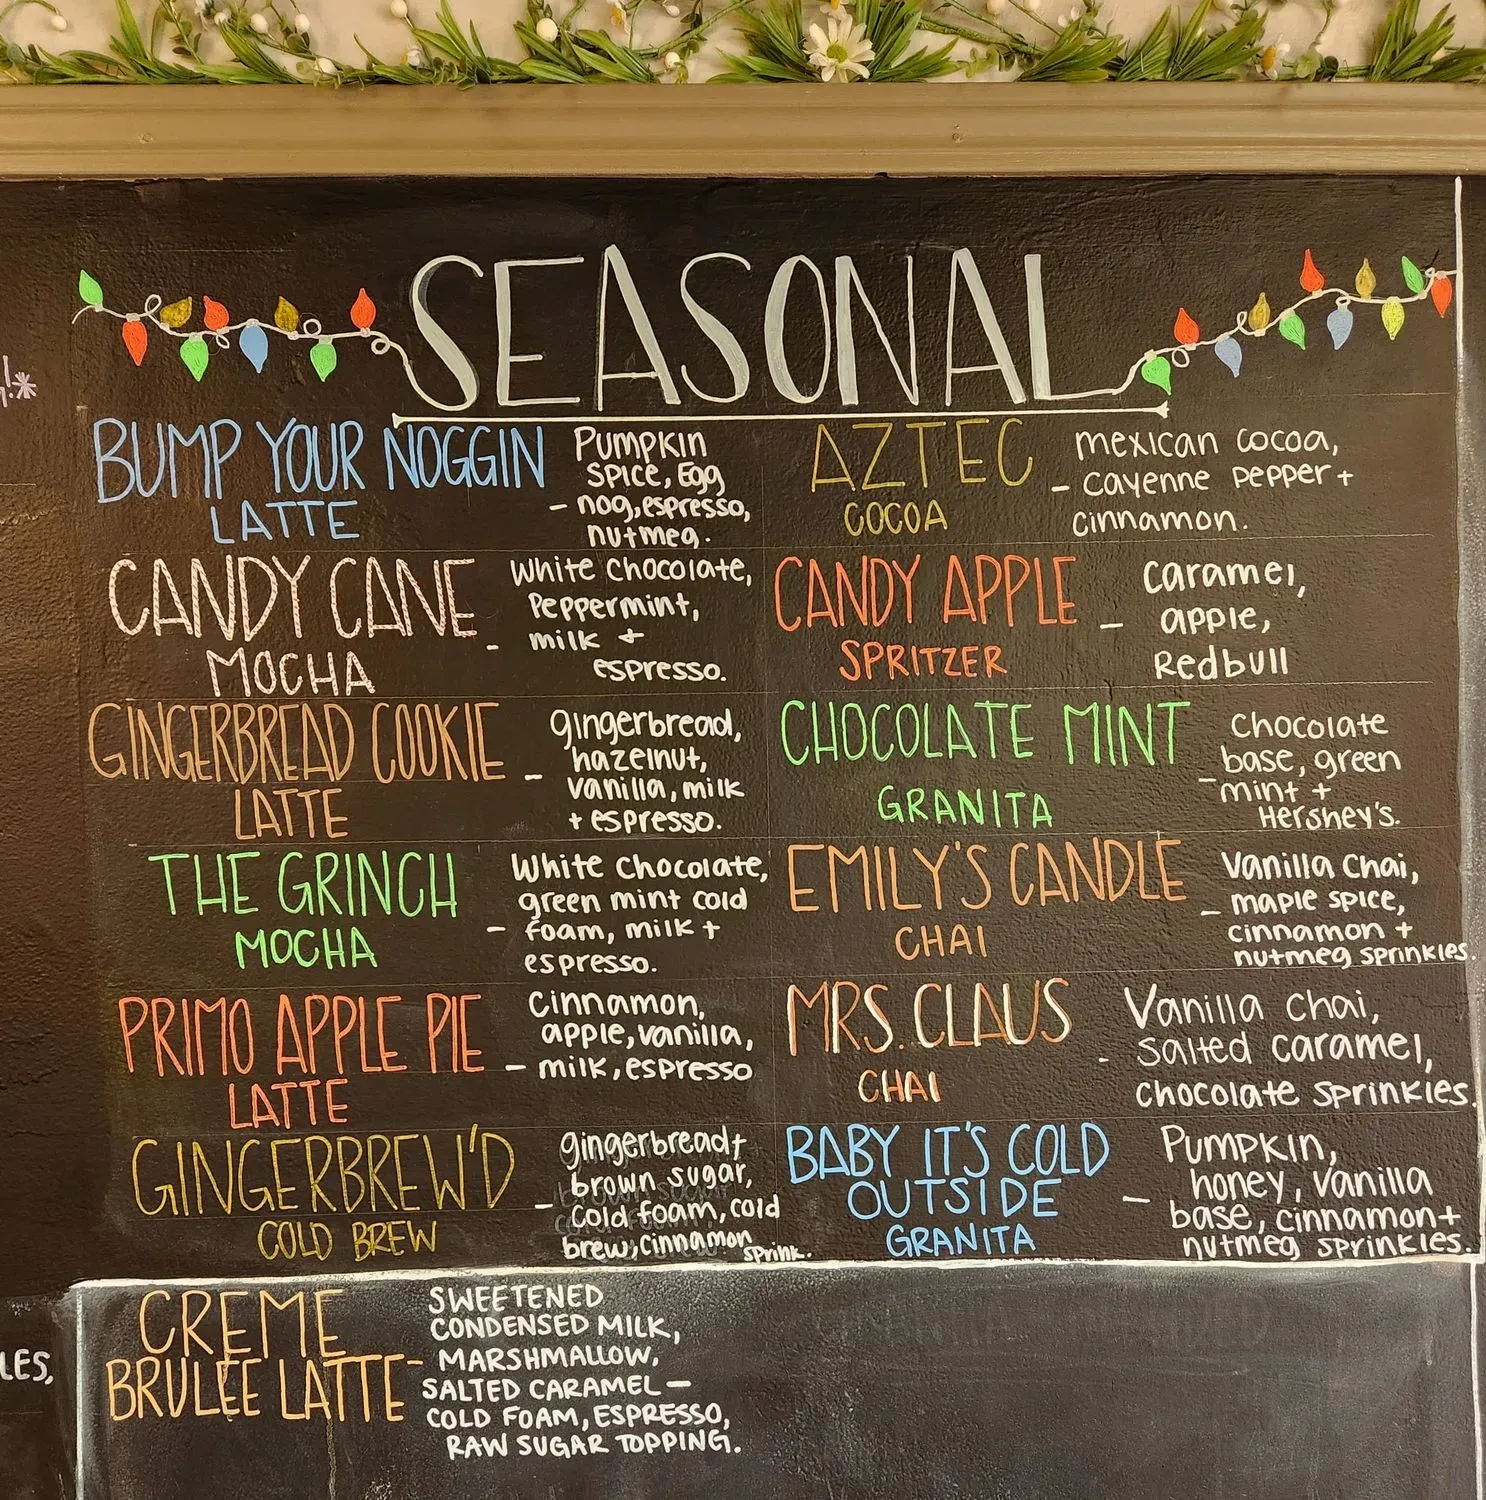 SEASONAL
BUMP YOUR NOGGIN
LATTE
Pumpkin
spice, Egg
- nog, espresso,
nutmeg.
CANDY CANE
MOCHA
- White Chocolate,
Peppermint,
milk +
espresso.
GINGERBREAD COOKIE
LATTE
- gingerbread,
hazelnut,
vanilla, milk
+ espresso.
THE GRINCH
MOCHA
White Chocolate,
green mint cold
- foam, milk +
espresso.
PRIMO APPLE PIE
LATTE
Cinnamon,
apple, vanilla,
- milk, espresso
GINGERBREW'D
COLD BREW
gingerbread+
brown sugar,
- cold foam, cold
brew, cinnamon sprink.
AZTEC
COCOA
mexican cocoa,
- cayenne pepper +
cinnamon.
CANDY APPLE
SPRITZER
Caramel,
- apple,
Redbull
CHOCOLATE MINT
GRANITA
Chocolate
- base, green
mint +
Hershey's.
EMILY'S CANDLE
CHAI
Vanilla Chai,
- maple spice,
cinnamon +
nutmeg sprinkles.
MRS. CLAUS
CHAI
Vanilla Chai,
- salted caramel,
chocolate sprinkles.
BABY IT'S COLD
OUTSIDE
GRANITA
Pumpkin,
- honey, vanilla
base, cinnamon+
nutmeg sprinkles.
CREME
BRULÉE LATTE -
SWEETENED
CONDENSED MILK,
MARSHMALLOW,
SALTED CARAMEL -
COLD FOAM, ESPRESSO,
RAW SUGAR TOPPING.
LES,